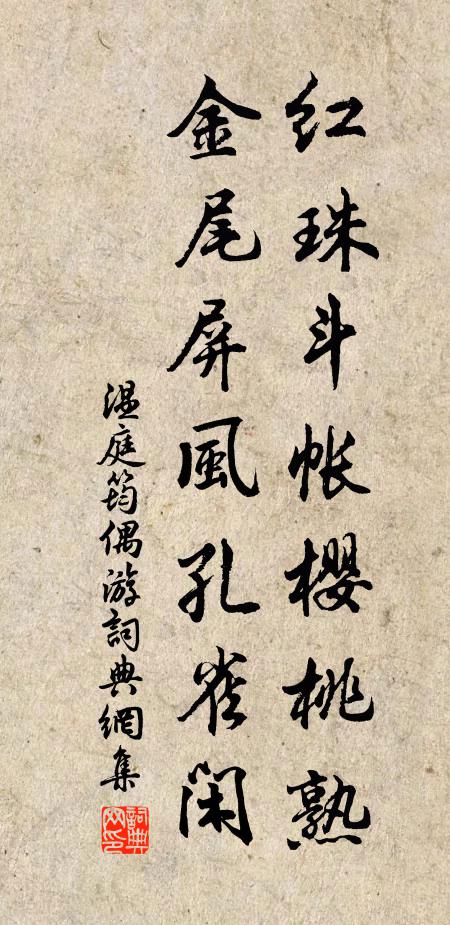 红珠斗帐櫻桃熟
金尾屏風孔雀閑
温庭筠偶游詞典網集
詞典網印